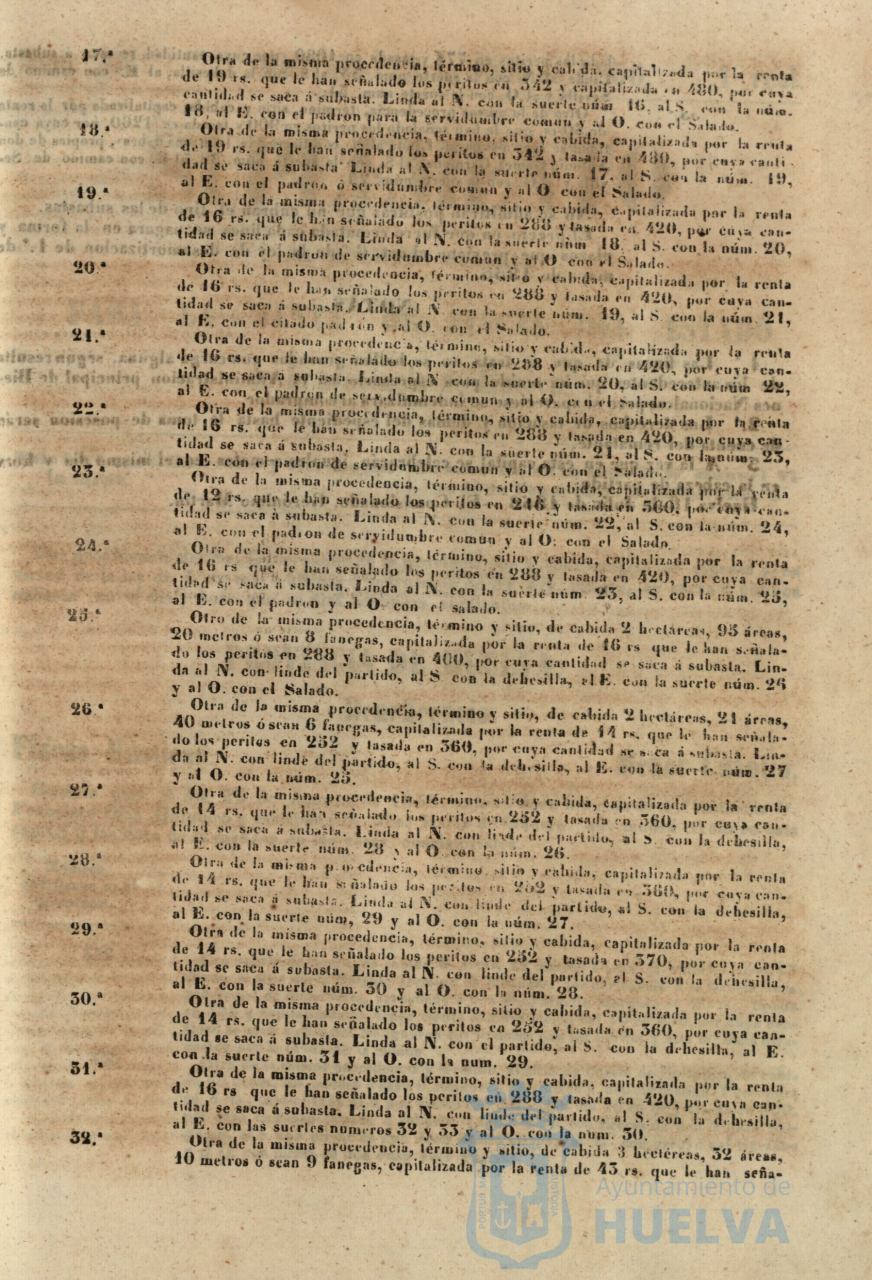 17.ª Otra de la misma procedencia, término, sitio y cabida, capitalizada por la renta
de 19 rs. que le han señalado los peritos en 342 y capitalizada en 480, por cuya
cantidad se saca á subasta. Linda al N. con la suerte núm 16, al S. con la núm.
18, al E. con el padron para la servidumbre comun y al O. con el Salado.
18.ª Otra de la misma procedencia, término, sitio y cabida, capitalizada por la renta
de 19 rs. que le han señalado los peritos en 342 y tasada en 480, por cuya canti-
dad se saca á subasta Linda al N. con la suerte núm. 17, al S. con la núm. 19,
al E. con el padron ó servidumbre comun y al O con el Salado.
19.ª Otra de la misma procedencia, término, sitio y cabida, capitalizada por la renta
de 16 rs. que le han señalado los peritos en 288 y tasada en 420, por cuya can-
tidad se saca á subasta. Linda al N. con la suerte núm 18, al S. con la núm. 20,
al E. con el padron de servidumbre comun y al O con el Salado.
20.ª Otra de la misma procedencia, término, sitio y cabida, capitalizada por la renta
de 16 rs. que le han señalado los peritos en 288 y tasada en 420, por cuya can-
tidad se saca á subasta. Linda al N con la suerte núm. 19, al S. con la núm. 21,
al E. con el citado padron y al O. con el Salado.
21.ª Otra de la misma procedencia, término, sitio y cabida, capitalizada por la renta
de 16 rs. que le han señalado los peritos en 288 y tasada en 420, por cuya can-
tidad se saca á subasta. Linda al N con la suerte núm. 20, al S. con la núm 22,
al E. con el padron de servidumbre comun y al O. con el Salado.
22.ª Otra de la misma procedencia, término, sitio y cabida, capitalizada por la renta
de 16 rs. que le han señalado los peritos en 288 y tasada en 420, por cuya can-
tidad se saca á subasta. Linda al N. con la suerte núm. 21, al S. con la núm. 23,
al E. con el padron de servidumbre comun y al O. con el Salado.
23.ª Otra de la misma procedencia, término, sitio y cabida, capitalizada por la renta
de 12 rs. que le han señalado los peritos en 216 y tasada en 360, por cuya can-
tidad se saca á subasta. Linda al N. con la suerte núm. 22, al S. con la núm. 24,
al E. con el padron de servidumbre comun y al O. con el Salado.
24.ª Otra de la misma procedencia, término, sitio y cabida, capitalizada por la renta
de 16 rs que le han señalado los peritos en 288 y tasada en 420, por cuya can-
tidad se saca á subasta. Linda al N. con la suerte núm 23, al S. con la núm. 25,
al E. con el padron y al O con el salado.
25.ª Otro de la misma procedencia, término y sitio, de cabida 2 hectáreas, 95 áreas,
20 metros ó sean 8 fanegas, capitalizada por la renta de 16 rs que le han señala-
do los peritos en 288 y tasada en 460, por cuya cantidad se saca á subasta. Lin-
da al N. con linde del partido, al S con la dehesilla, al E. con la suerte núm. 26
y al O. con el Salado.
26.ª Otra de la misma procedencia, término y sitio, de cabida 2 hectáreas, 21 áreas,
40 metros ó sean 6 fanegas, capitalizada por la renta de 14 rs. que le han señala-
do los peritos en 252 y tasada en 360, por cuya cantidad se saca á subasta. Lin-
da al N. con linde del partido, al S. con la dehesilla, al E. con la suerte núm. 27
y al O. con la núm. 25.
27.ª Otra de la misma procedencia, término, sitio y cabida, capitalizada por la renta
de 14 rs. que le han señalado los peritos en 252 y tasada en 360, por cuya can-
tidad se saca á subasta. Linda al N. con linde del partido, al S. con la dehesilla,
al E. con la suerte núm. 28 y al O. con la núm. 26.
28.ª Otra de la misma procedencia, término, sitio y cabida, capitalizada por la renta
de 14 rs. que le han señalado los peritos en 252 y tasada en 360, por cuya can-
tidad se saca á subasta. Linda al N. con linde del partido, al S. con la dehesilla,
al E. con la suerte núm, 29 y al O. con la núm. 27.
29.ª Otra de la misma procedencia, término, sitio y cabida, capitalizada por la renta
de 14 rs. que le han señalado los peritos en 252 y tasada en 370, por cuya can-
tidad se saca á subasta. Linda al N. con linde del partido, al S. con la dehesilla,
al E. con la suerte núm. 30 y al O. con la núm. 28.
30.ª Otra de la misma procedencia, término, sitio y cabida, capitalizada por la renta
de 14 rs. que le han señalado los peritos en 252 y tasada en 360, por cuya can-
tidad se saca á subasta. Linda al N. con el partido, al S. con la dehesilla, al E.
con la suerte núm. 31 y al O. con la num. 29.
31.ª Otra de la misma procedencia, término, sitio y cabida, capitalizada por la renta
de 16 rs que le han señalado los peritos en 288 y tasada en 420, por cuya can-
tidad se saca á subasta. Linda al N. con linde del partido, al S. con la dehesilla,
al E. con las suertes numeros 32 y 33 y al O. con la núm. 30.
32.ª Otra de la misma procedencia, término y sitio, de cabida 3 hectéreas, 32 áreas,
10 metros ó sean 9 fanegas, capitalizada por la renta de 43 rs. que le han seña-
Ayuntamiento de
HUELVA